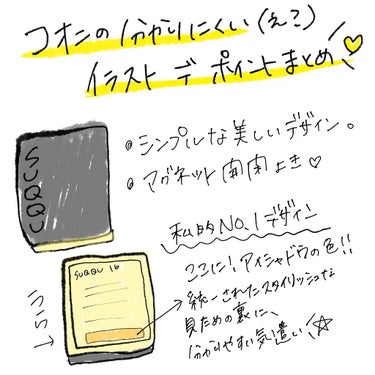 コオニの分かりにくい(えご)
イラストデポイントまとめ
SUQQU
・シンプルな美しいデザイン。
・マグネット開閉よき♡
私的NO.1デザイン
SUQQU 16
ここに!アイシャドウの色!!
統一されたスタイリッシュな
見ための裏に、
分かりやすい気遣い☆